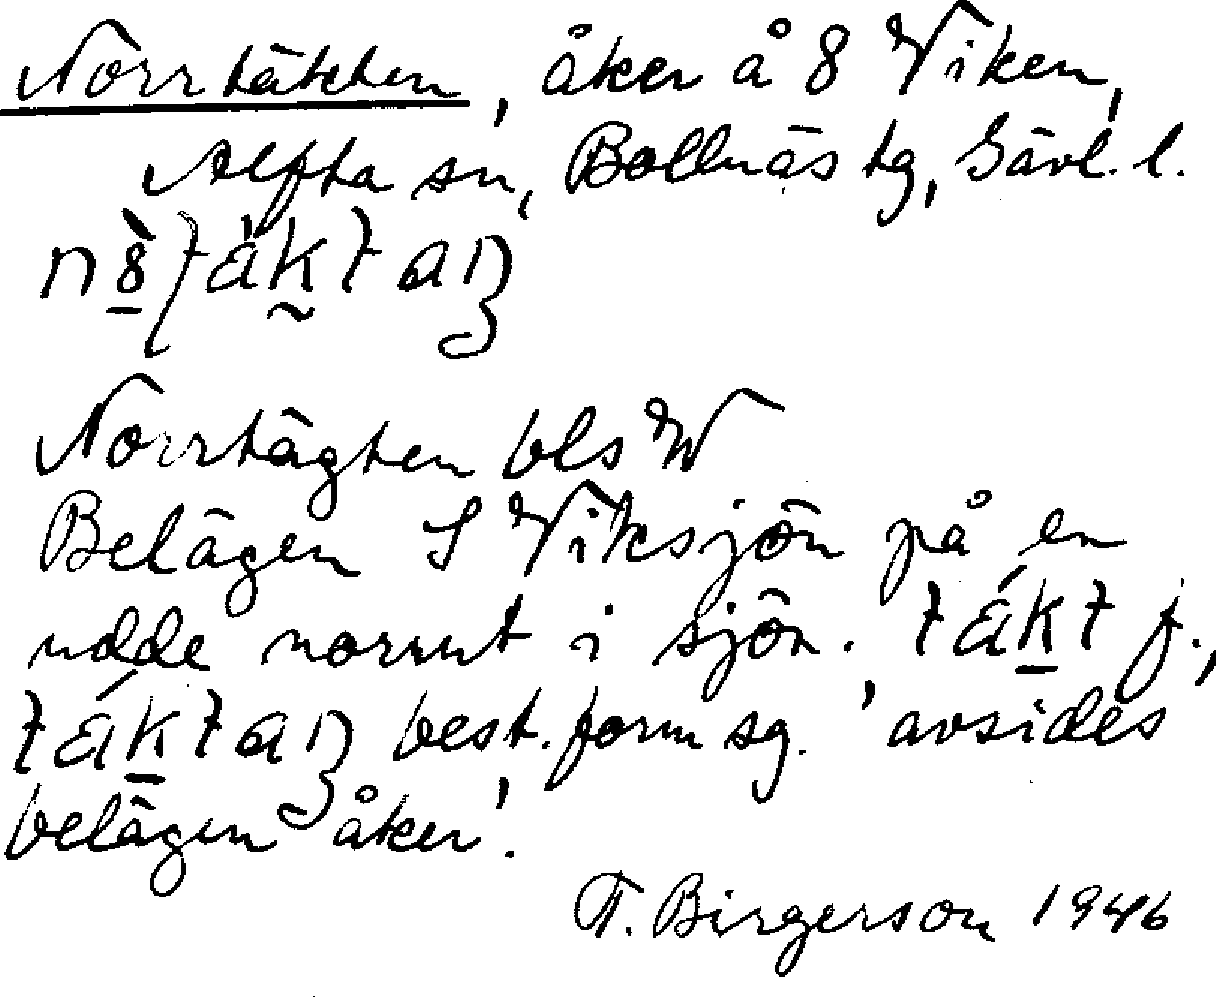 Norrtäkten, åker å 8 Viken,
Alfta sn, Bollnäs tg, Gävl. l.
Norrtägten bls W
Belägen S Viksjön på en
udde norrut i sjön. tákt f.,
táktaŋ best. form sg. 'avsides
belägen åker'.
T. Birgerson 1946